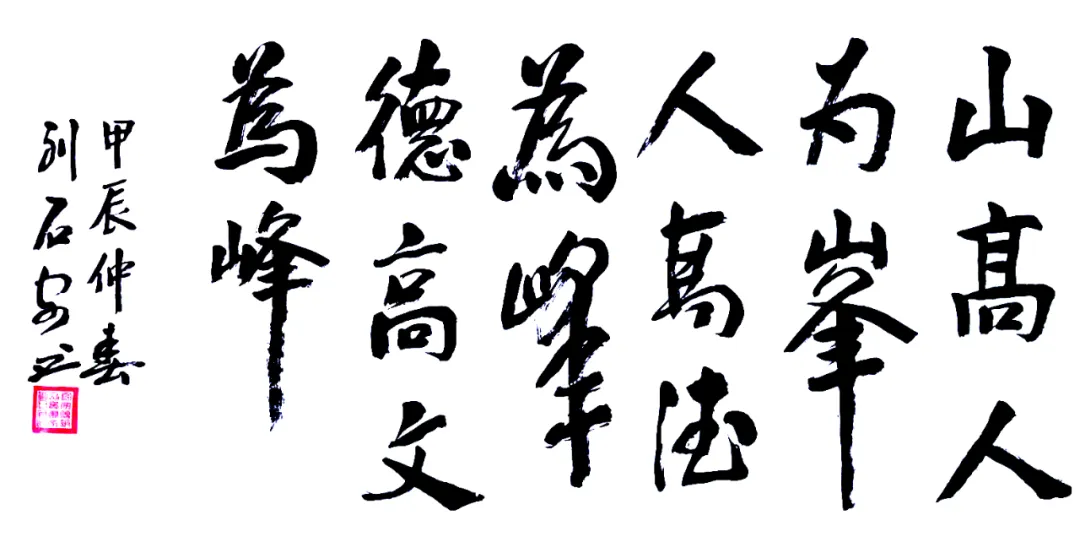 山高人
为峯
人高德
為峰
德高文
為峰
甲辰仲春
刘石安书